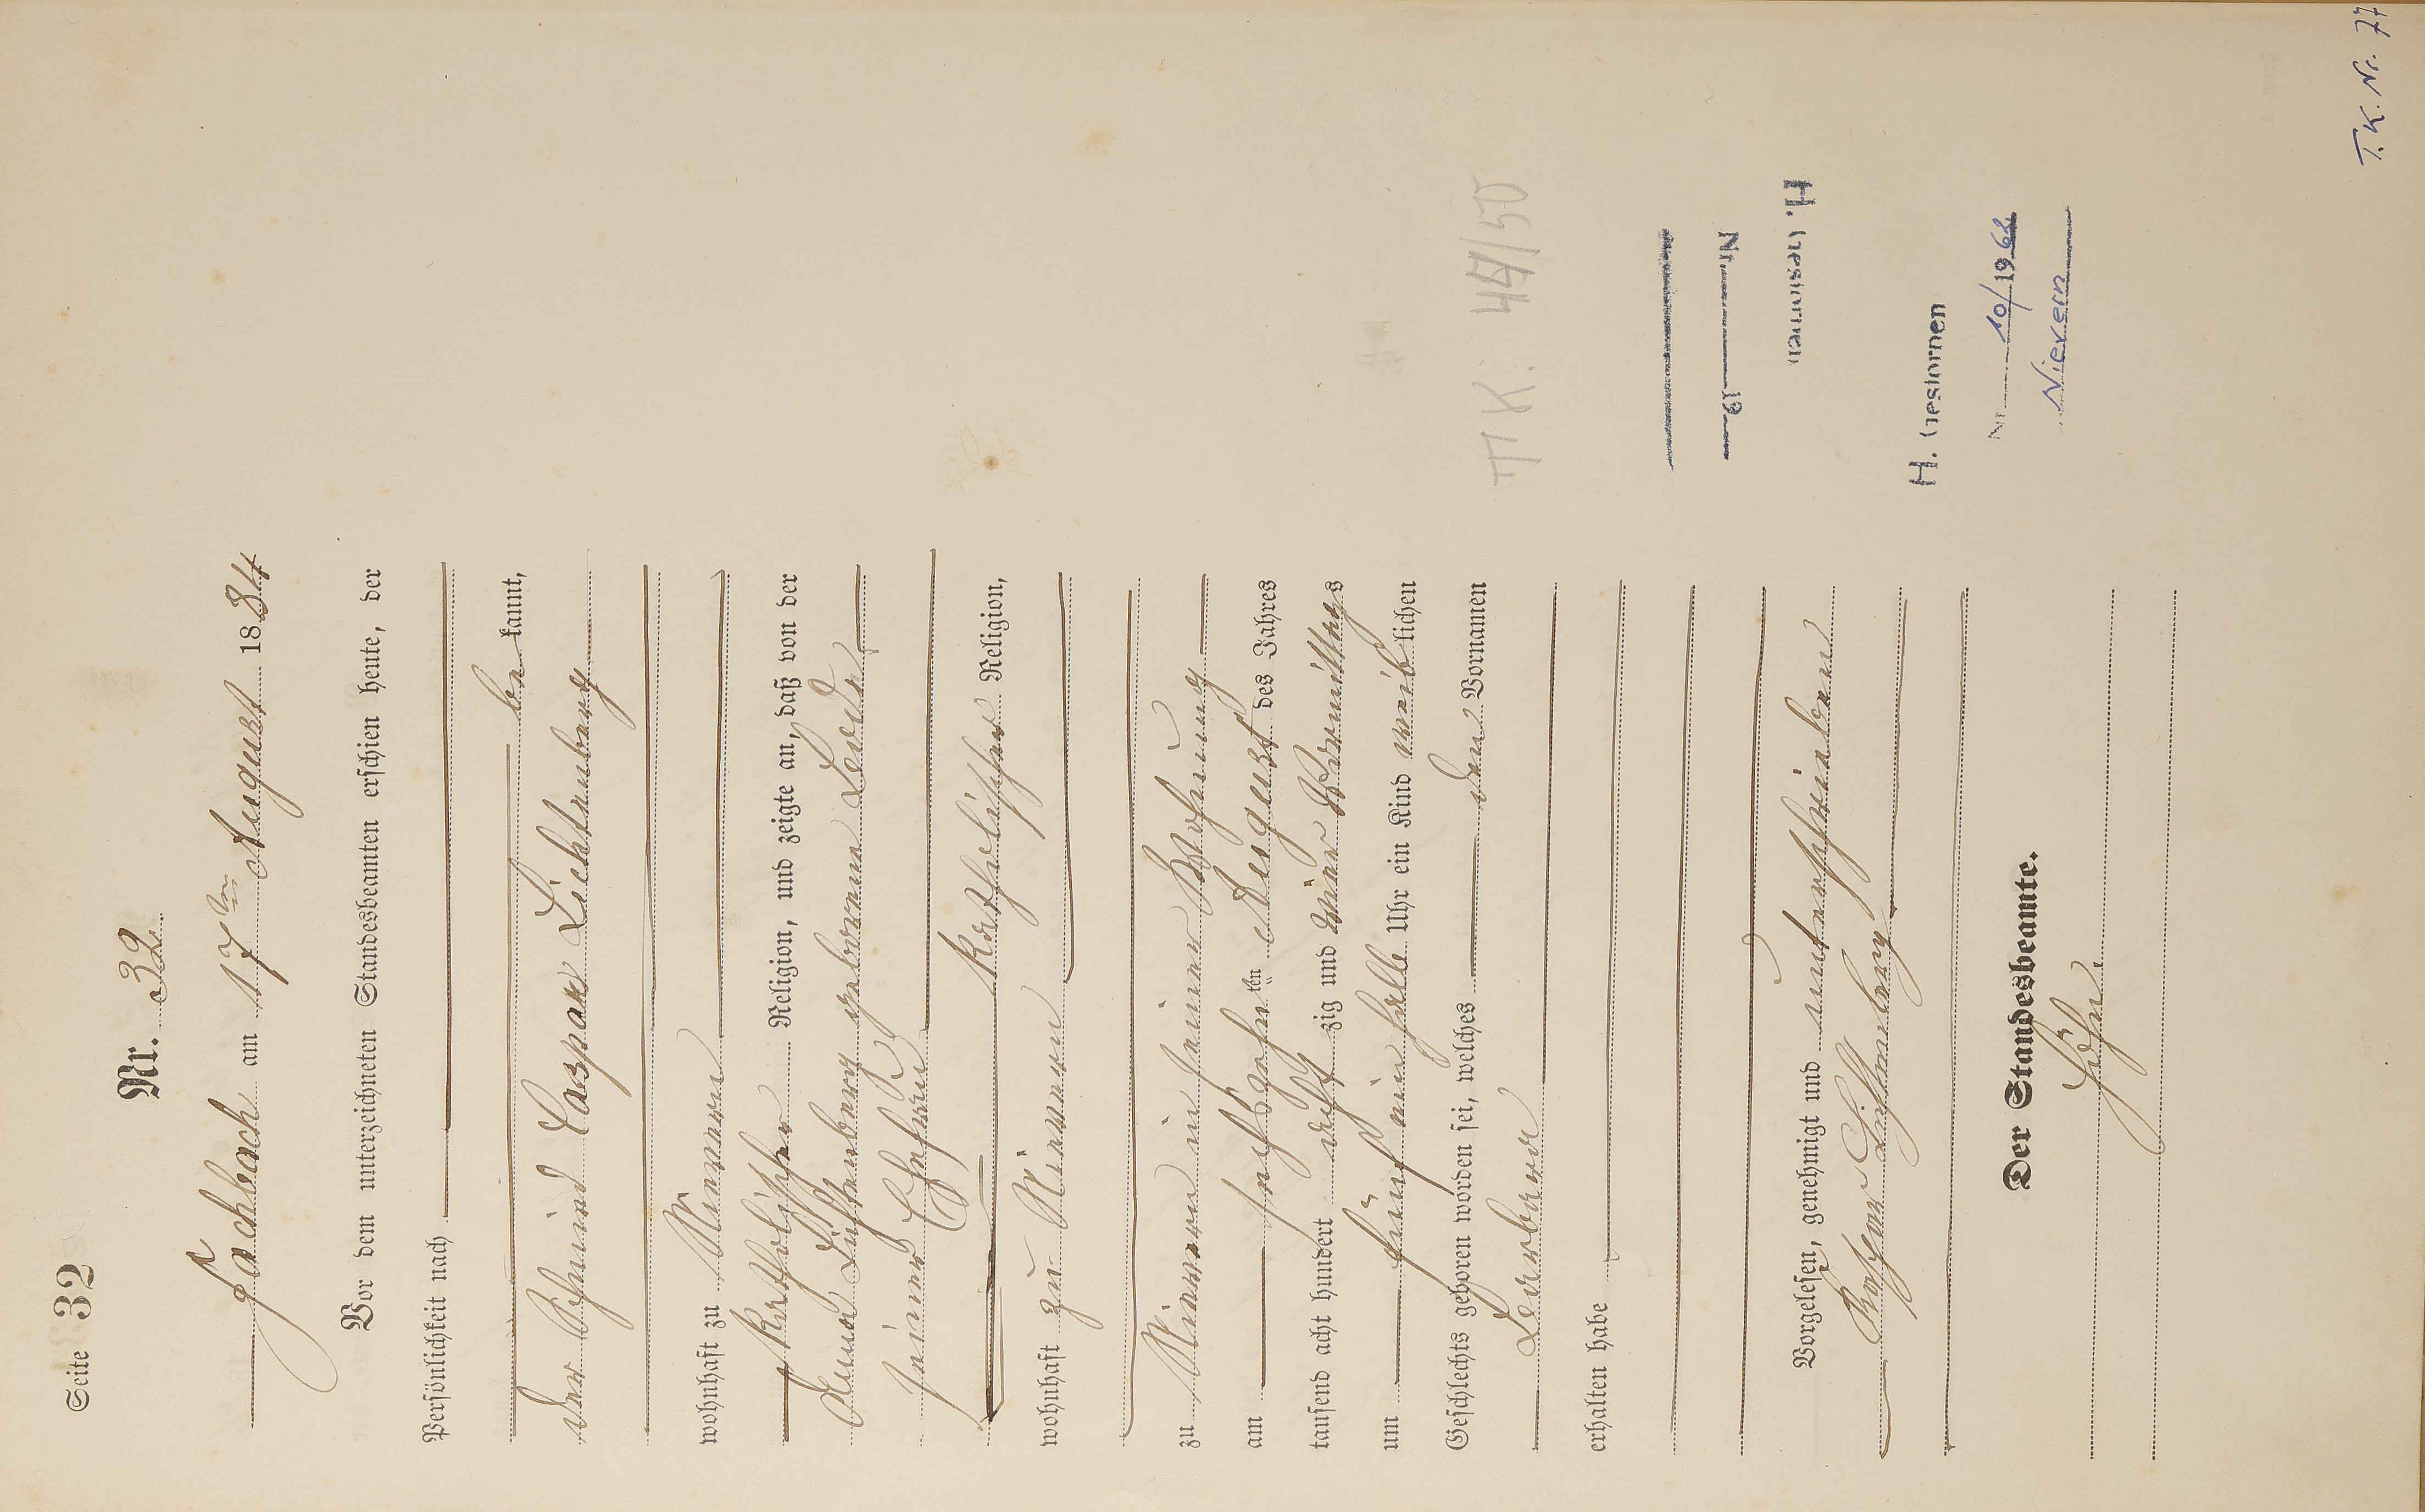 Seite 32
Nr. 32.
Fachbach am 17ten August 1884
Vor dem unterzeichneten Standesbeamten erschien heute, der
Persönlichkeit nach
be kannt,
der Schmied Caspar Lichtenberg
wohnhaft zu Nievern
katholischer Religion, und zeigte an, daß von der
Anna Lichtenberg geborenen
seiner Ehefrau
katholischer Religion,
wohnhaft zu Nievern
zu Nievern in seiner Wohnung
am sechszehnten August des Jahres
tausend acht hundert acht zig und vier Vormittags
um fünf ein halb Uhr ein Kind weib lichen
Geschlechts geboren worden sei, welches den Vornamen
Barbara
erhalten habe
Vorgelesen, genehmigt und unterschrieben
Caspar Lichtenberg
Der Standesbeamte.
Höhn.
TK: 47/50
Nr. 19
H. Gestorben
H. Gestorben
Nr. 10/1962
Nievern
T.K. Nr. 77